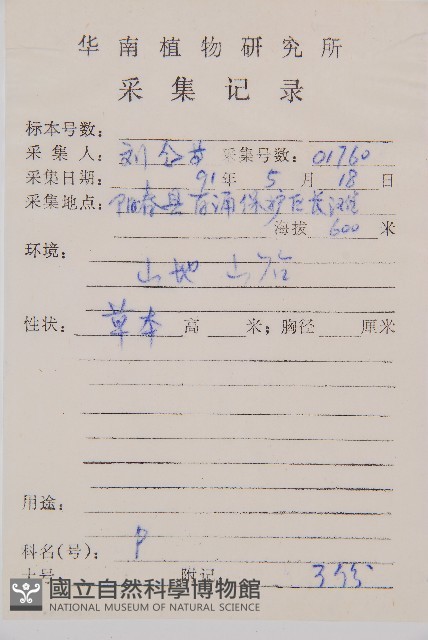 华南植物研究所
采集记录
标本号数:
采集人: 刘 采集号数: 01760
采集日期: 91年 5月 18日
采集地点: 阳春县百涌保护区长滩
海拔 600 米
环境:
山地 山谷
性状: 草本 高 米; 胸径 厘米
用途:
科名(号): P
土名 附记
國立自然科學博物館
NATIONAL MUSEUM OF NATURAL SCIENCE